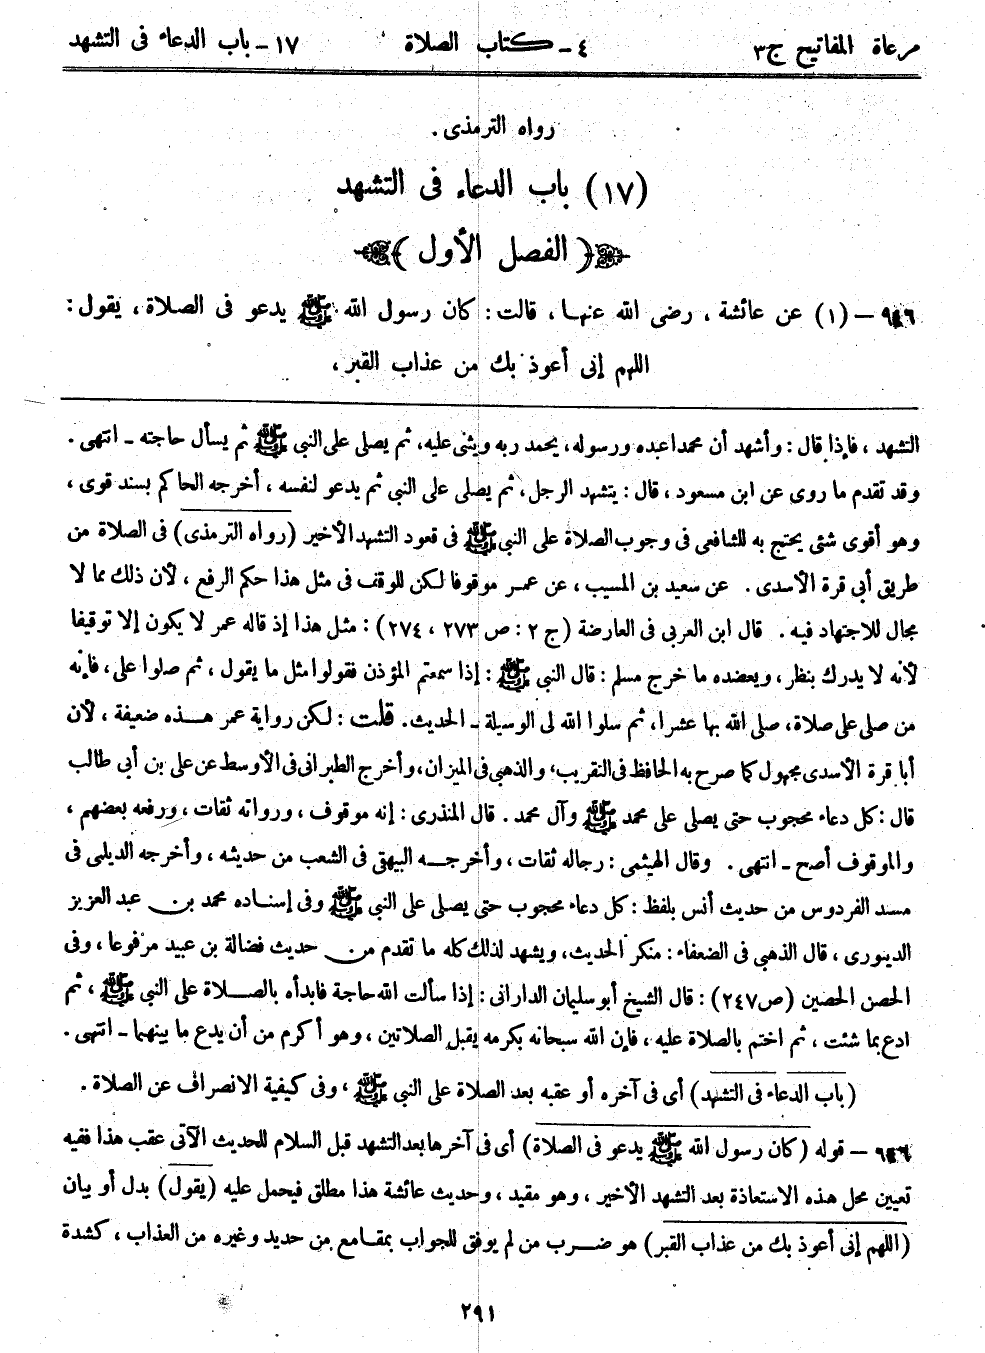 مرعاة المفاتيح ج٣ ٤ - كتاب الصلاة ١٧ - باب الدعاء فى التشهد
رواه الترمذى .
(١٧) باب الدعاء فى التشهد
﴿ الفصل الأول ﴾
٩٤٦ – (١) عن عائشة ، رضى الله عنها ، قالت : كان رسول الله ﷺ يدعو فى الصلاة ، يقول :
اللهم إنى أعوذ بك من عذاب القبر ،
التشهد ، فإذا قال : وأشهد أن محمدا عبده ورسوله ، يحمد ربه ويثنى عليه ، ثم يصلى على النبى ﷺ ثم يسأل حاجته - انتهى .
وقد تقدم ما روى عن ابن مسعود ، قال : يتشهد الرجل ، ثم يصلى على النبى ثم يدعو لنفسه ، أخرجه الحاكم بسند قوى ،
وهو أقوى شئ يحتج به للشافعى فى وجوب الصلاة على النبى ﷺ فى قعود التشهد الأخير (رواه الترمذى) فى الصلاة من
طريق أبى قرة الأسدى . عن سعيد بن المسيب ، عن عمر موقوفا لكن للوقف فى مثل هذا حكم الرفع ، لأن ذلك مما لا
مجال للاجتهاد فيه . قال ابن العربى فى العارضة (ج ٢ : ص ٢٧٣ ، ٢٧٤) : مثل هذا إذ قاله عمر لا يكون إلا توقيفا
لأنه لا يدرك بنظر ، ويعضده ما خرج مسلم : قال النبى ﷺ : إذا سمعتم المؤذن فقولوا مثل ما يقول ، ثم صلوا على ، فإنه
من صلى على صلاة ، صلى الله بها عشرا ، ثم سلوا الله لى الوسيلة - الحديث . قلت : لكن رواية عمر هذه ضعيفة ، لأن
أبا قرة الأسدى مجهول كما صرح به الحافظ فى التقريب ، والذهبى فى الميزان ، وأخرج الطبرانى فى الأوسط عن على بن أبى طالب
قال : كل دعاء محجوب حتى يصلى على محمد ﷺ وآل محمد . قال المنذرى : إنه موقوف ، ورواته ثقات ، ورفعه بعضهم ،
والموقوف أصح - انتهى . وقال الهيثمى : رجاله ثقات ، وأخرجه البيهقى فى الشعب من حديثه ، وأخرجه الديلمى فى
مسند الفردوس من حديث أنس بلفظ : كل دعاء محجوب حتى يصلى على النبى ﷺ وفى إسناده محمد بن عبد العزيز
الدينورى ، قال الذهبى فى الضعفاء : منكر الحديث ، ويشهد لذلك كله ما تقدم من حديث فضالة بن عبيد مرفوعا ، وفى
الحصن الحصين (ص ٢٤٧) : قال الشيخ أبو سليمان الدارانى : إذا سألت الله حاجة فابدأه بالصلاة على النبى ﷺ ، ثم
ادع بما شئت ، ثم اختم بالصلاة عليه ، فإن الله سبحانه بكرمه يقبل الصلاتين ، وهو أكرم من أن يدع ما بينهما - انتهى .
(باب الدعاء فى التشهد) أى فى آخره أو عقبه بعد الصلاة على النبى ﷺ ، وفى كيفية الانصراف عن الصلاة .
٩٤٦ – قوله (كان رسول الله ﷺ يدعو فى الصلاة) أى فى آخرها بعد التشهد قبل السلام للحديث الآتى عقب هذا ففيه
تعيين محل هذه الاستعاذة بعد التشهد الأخير ، وهو مقيد ، وحديث عائشة هذا مطلق فيحمل عليه (يقول) بدل أو بيان
(اللهم إنى أعوذ بك من عذاب القبر) هو ضرب من لم يوفق للجواب بمقامع من حديد وغيره من العذاب ، كشدة
٢٩١